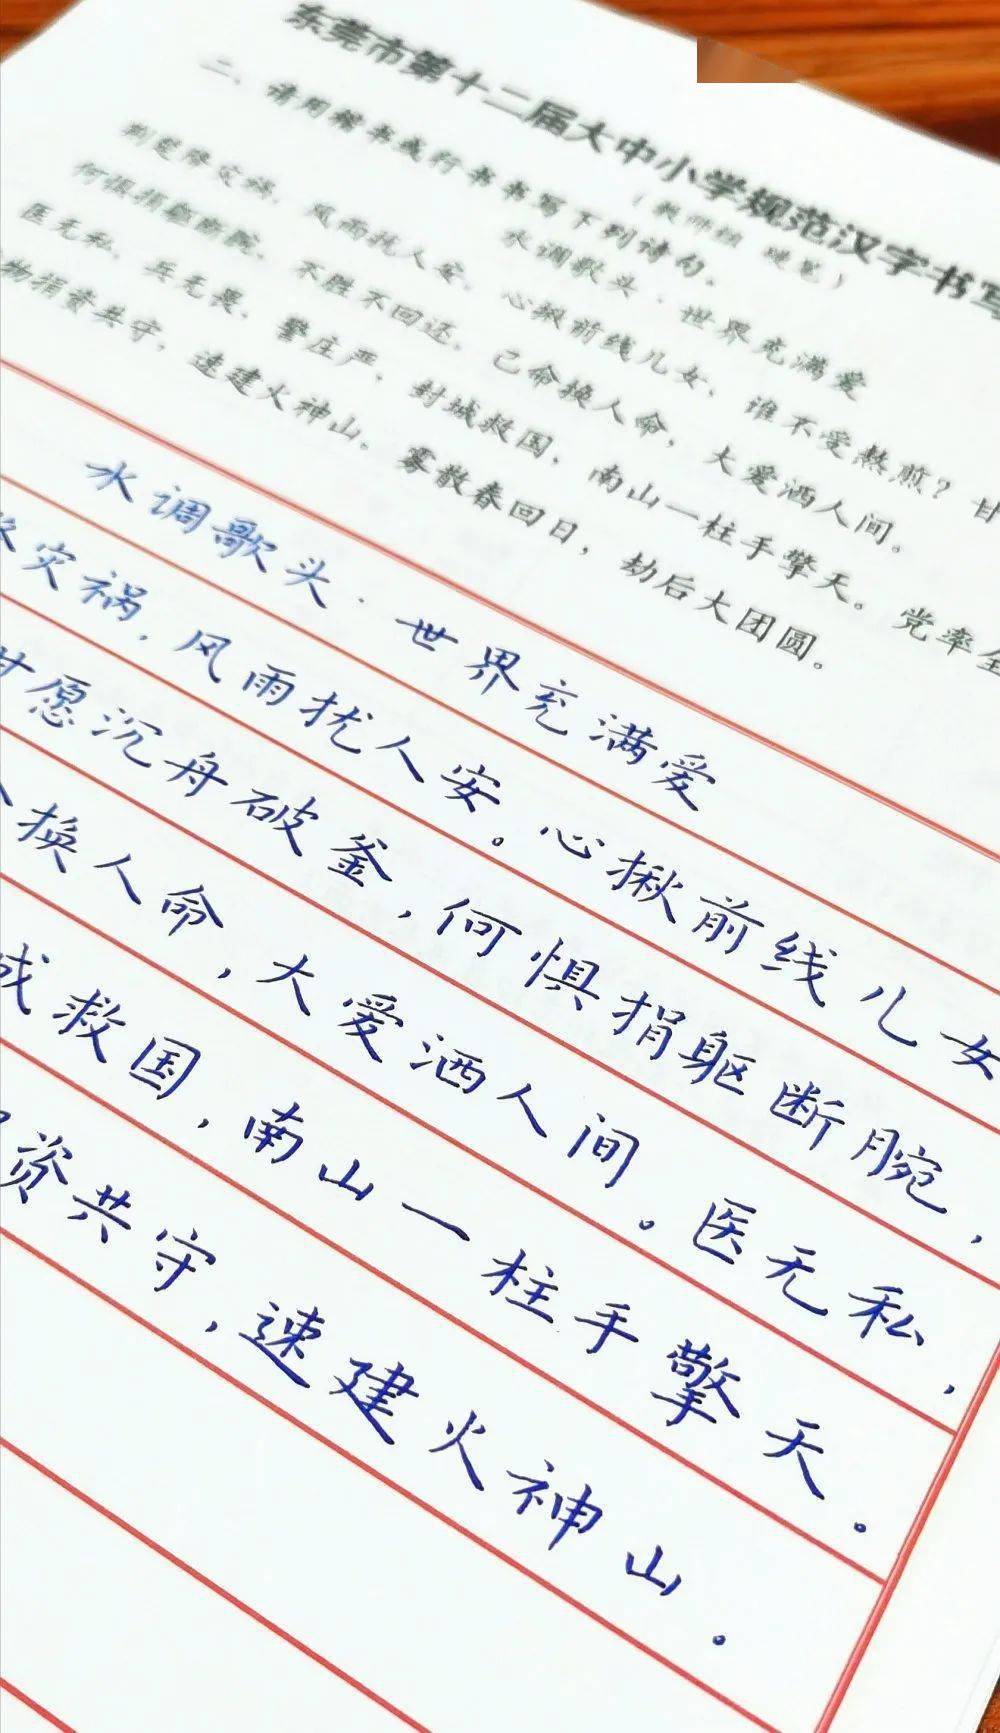 东莞市第十二届大中小学规范汉字书写
（教师组 硬笔）
二、请用楷书或行书书写下列诗句。
水调歌头·世界充满爱
荆楚降灾祸，风雨扰人安。心揪前线儿女，谁不受熬煎？甘
何惧捐躯断腕，不胜不回还。己命换人命，大爱洒人间。
医无私，兵无畏，警庄严，封城救国，南山一柱手擎天。党率全
物捐资共守，速建火神山。雾散春回日，劫后大团圆。
水调歌头·世界充满爱
灾祸，风雨扰人安。心揪前线儿女
甘愿沉舟破釜，何惧捐躯断腕，
换人命，大爱洒人间。医无私，
救国，南山一柱手擎天。
资共守，速建火神山。